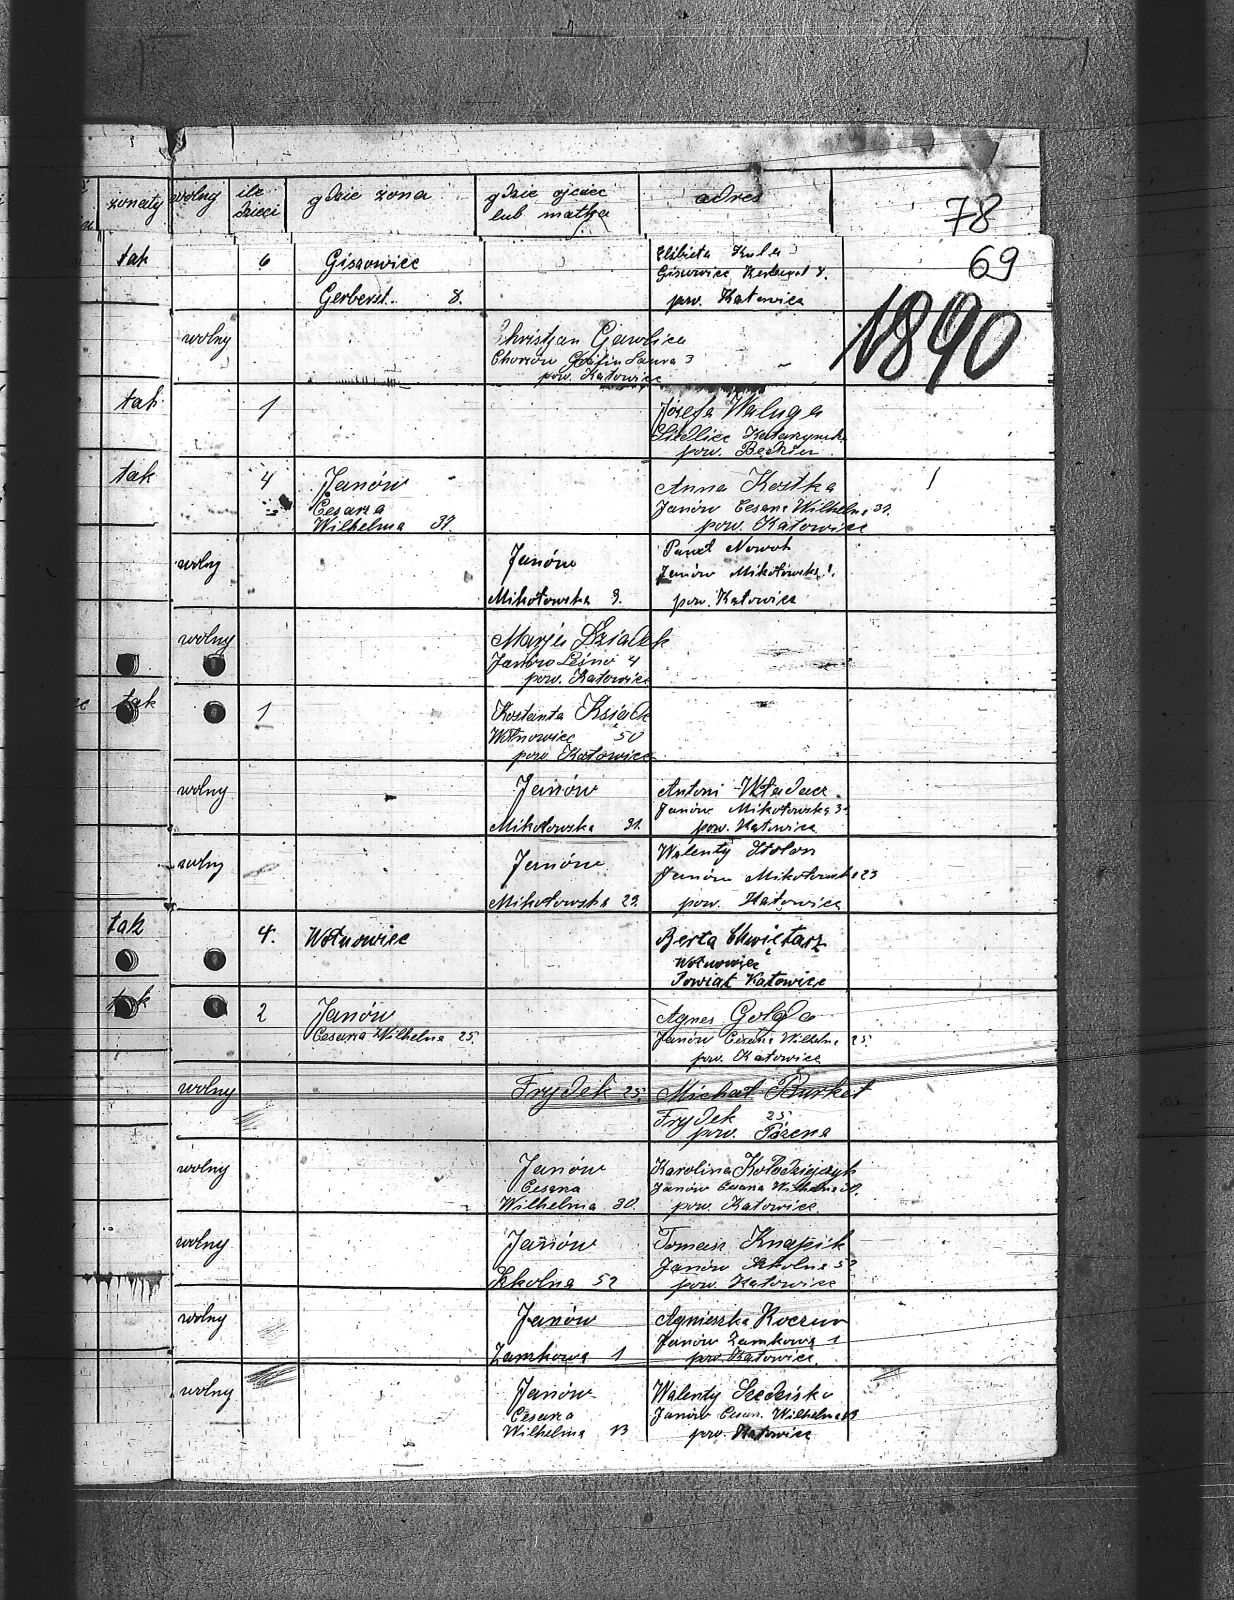 żonaty wolny ile dzieci gdzie żona gdzie ojciec lub matka adres
78
69
1890
tak 6 Giszowiec Elżbieta Kula
Giszowiec
8. 8.
pow. Katowice
wolny Christjan Gawlica
Chorzów Gräfin Laura 3
pow. Katowice
tak 1 Józefa Waluga
pow. Będzin
tak 4 Janów Anna Kostka
Cesarza Janów Cesarza Wilhelma 39.
Wilhelma 39. pow. Katowice
wolny Janów Paweł Nowok
Janów Mikołowska
Mikołowska 9. pow. Katowice
wolny Marja Dziadek
Janów Leśna 4
pow. Katowice
tak 1 Konstanta Ksiądz
Wełnowiec 50
pow. Katowice
wolny Janów Antoni
Janów Mikołowska 31
Mikołowska 31. pow. Katowice
wolny Janów Walenty Stolon
Janów Mikołowska 23
Mikołowska 23. pow. Katowice
tak 4. Wełnowiec Berta Chwiętarz
Wełnowiec
Powiat Katowice
tak 2 Janów Agnes
Cesarza Wilhelma 25. Janów Cesarza Wilhelma 25.
pow. Katowice
wolny Frydek 25. Michał Burket
Frydek 25
pow.
wolny Janów Karolina Kołodziejczyk
Cesarza Janów Cesarza Wilhelma 30.
Wilhelma 30. pow. Katowice
wolny Janów Tomasz Knapik
Janów Szkolna 52
Szkolna 52 pow. Katowice
wolny Janów Agnieszka Koczur
Janów Zamkowa 1
Zamkowa 1 pow. Katowice
wolny Janów Walenty
Cesarza Janów Cesarz. Wilhelma 13
Wilhelma 13 pow. Katowice